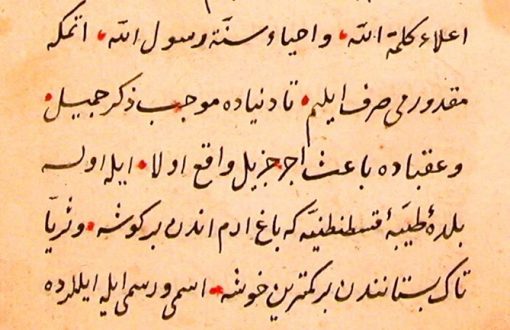 اعلاء كلمة الله، واحياء سنّة رسول الله، اتمكه
مقدورمى صرف ايليم، تا دنياده موجب ذكر جميل،
وعقباده باعث اجر جزيل واقع اولا، ايله اولسه
بلدۀ طيّبۀ قسطنطنيّه كه باغ ارم اندن بر كوشه، وثريّا
تاك بستانندن بر كمترين خوشه، اسمى ورسمى ايله ايللرده